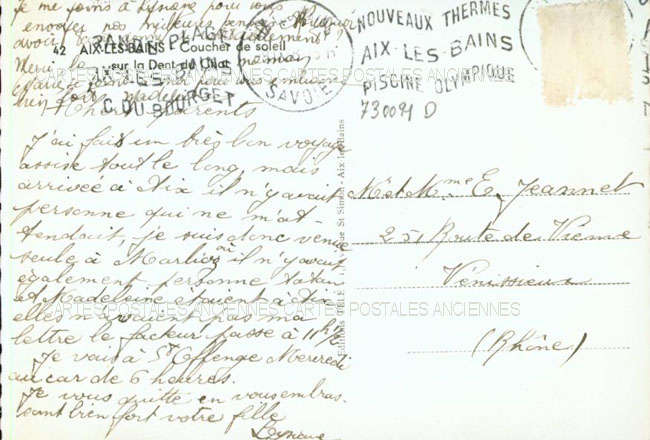 Je me joins à Lysiane pour vous
envoyer nos meilleures pensées
avoir
Merci
42 AIX-LES-BAINS - Coucher de soleil
sur la Dent du Chat
PLAGE
AIX-LES-BAINS
C. DU BOURGET
SAVOIE
NOUVEAUX THERMES
AIX-LES-BAINS
PISCINE OLYMPIQUE
730091 D
Chers parents
J'ai fait un très bon voyage
assise tout le long mais
arrivée à Aix il n'y avait
personne qui ne m'at-
tendait, je suis donc venue
seule à Marlioz où il n'y avait
également personne tatan
et Madeleine étaient à Aix
elles n'avaient pas ma
lettre le facteur passe à 11h1/2
Je vais à St Offenge Mercredi
au car de 6 heures.
Je vous quitte en vous embras-
sant bien fort votre fille
Mr et Mme E. Jeannet
251 Route de Vienne
Vénissieux
(Rhône)
CARTES POSTALES ANCIENNES CARTES POSTALES ANCIENNES
CARTES POSTALES ANCIENNES CARTES POSTALES ANCIENNES